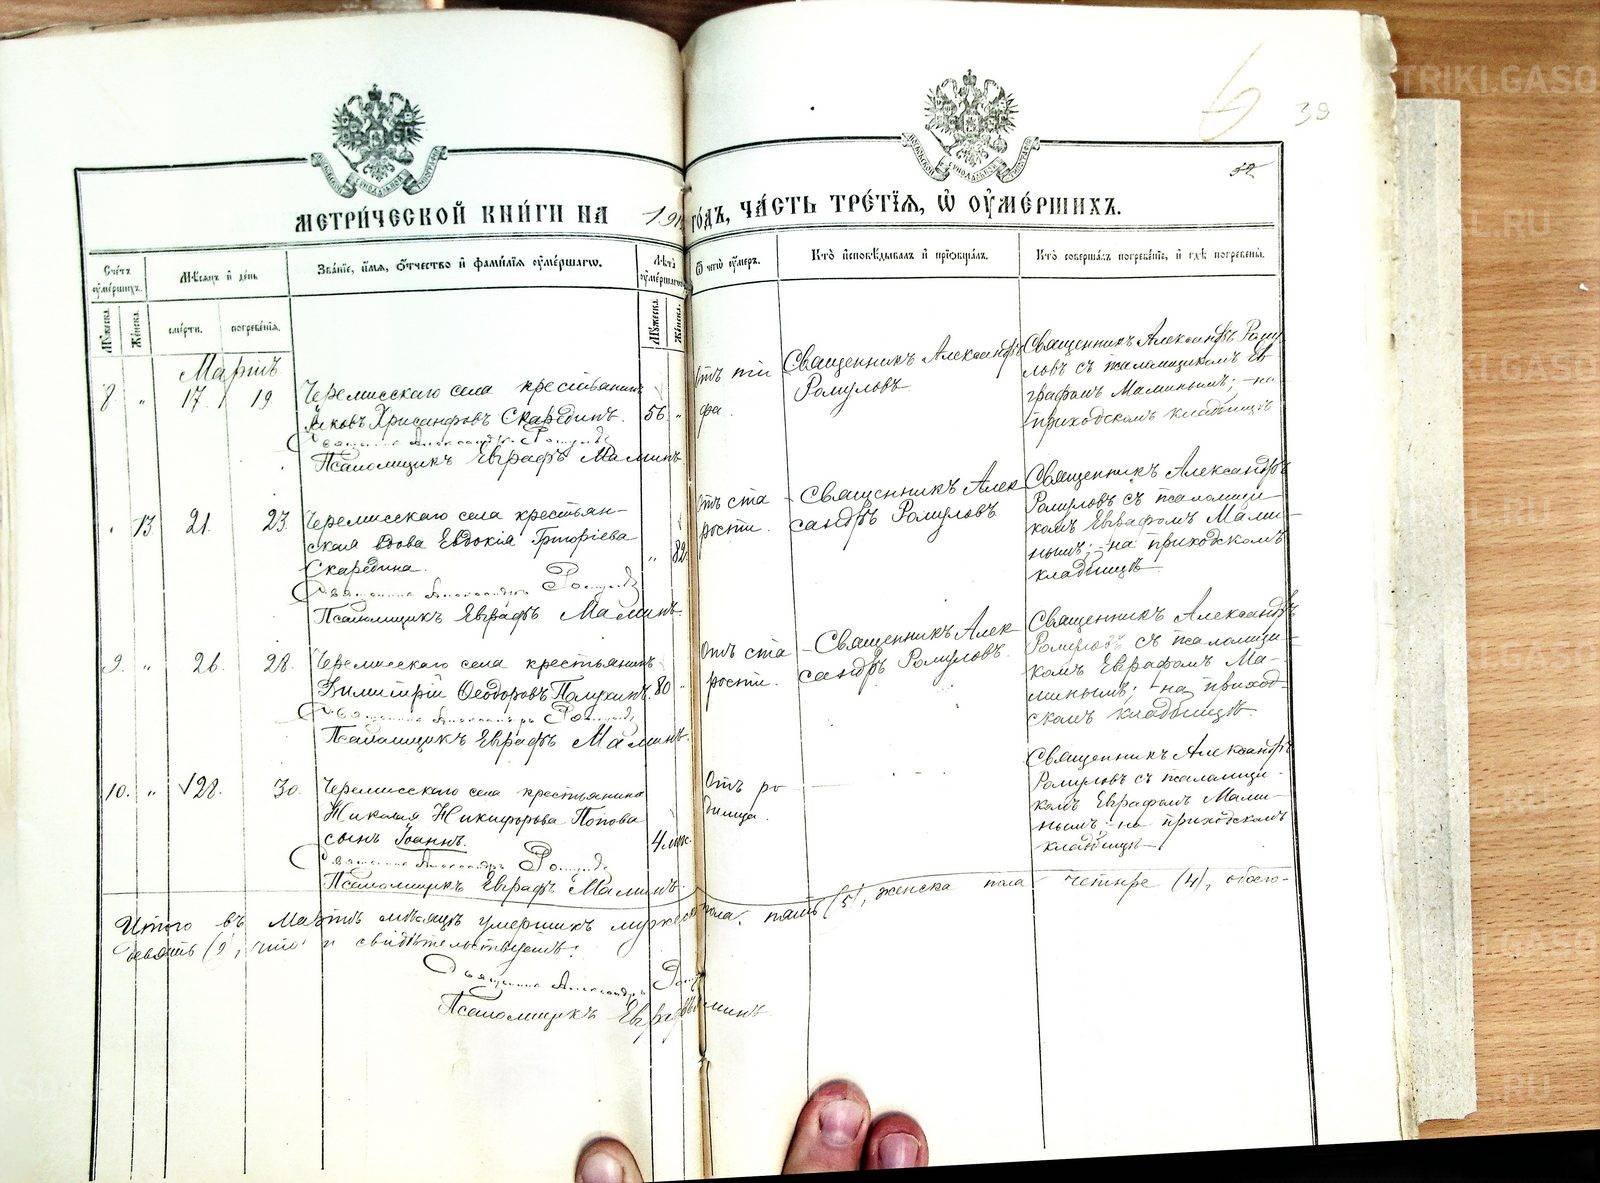 38
МЕТРИ́ЧЕСКОЙ КНИ́ГИ НА 191 ГО́ДЪ, ЧА́СТЬ ТРЕ́ТІѦ, Ѡ ОУМЕ́РШИХЪ.
Сче́тъ оуме́ршихъ.
Мѣ́сѧцъ и день
Зва́нїе, и́мѧ, о́тчество и фами́лїѧ оуме́ршагѡ.
Лѣ́та оуме́ршагѡ
Ѿ чегѡ̀ оу́меръ.
Кто̀ исповѣ́дывалъ и прїобща́лъ.
Кто̀ соверша́лъ погребе́нїе, и гдѣ̀ погребены̀.
Мꙋ́жеска. Же́нска. сме́рти. погребе́нїѧ. Мꙋ́жеска. Же́нска.
Мартъ
8 " 17. 19
Черемисскаго села крестьянинъ
Іаковъ Хрисанфовъ Скарединъ. 56 "
Священникъ Александръ Ромуловъ
Псаломщикъ Евграфъ Маминъ
Отъ ти
фа.
Священникъ Александръ
Ромуловъ
Священникъ Александръ Рому
ловъ съ псаломщикомъ Ев
графомъ Маминымъ; на
приходскомъ кладбищѣ
" 13 21. 23.
Черемисскаго села крестьян-
ская вдова Евдокія Григоріева
Скаредина. " 82
Священникъ Александръ Ромуловъ
Псаломщикъ Евграфъ Маминъ.
Отъ ста
рости.
Священникъ Алек
сандръ Ромуловъ
Священникъ Александръ
Ромуловъ съ псаломщи-
комъ Евграфомъ Мами-
нымъ; на приходскомъ
кладбищѣ
9. " 26. 28.
Черемисскаго села крестьянинъ
Димитрій Ѳеодоровъ 80 "
Священникъ Александръ Ромуловъ
Псаломщикъ Евграфъ Маминъ.
Отъ ста
рости.
Священникъ Алек
сандръ Ромуловъ.
Священникъ Александръ
Ромуловъ съ псаломщи-
комъ Евграфомъ Ма-
минымъ; на приход-
скомъ кладбищѣ.
10. " 28. 30.
Черемисскаго села крестьянина
Николая Никифорова Попова
сынъ Іоаннъ. 4 мѣс.
Священникъ Александръ Ромуловъ
Псаломщикъ Евграфъ Маминъ.
Отъ ро
димца.
Священникъ Александръ
Ромуловъ съ псаломщи-
комъ Евграфомъ Мами-
нымъ; на приходскомъ
кладбищѣ
Итого въ Мартѣ мѣсяцѣ умершихъ мужеска пола: пять (5), женска пола четыре (4), обоего-
девять (9), что и свидѣтельствуемъ:
Священникъ Александръ Ромуловъ
Псаломщикъ Евграфъ Маминъ